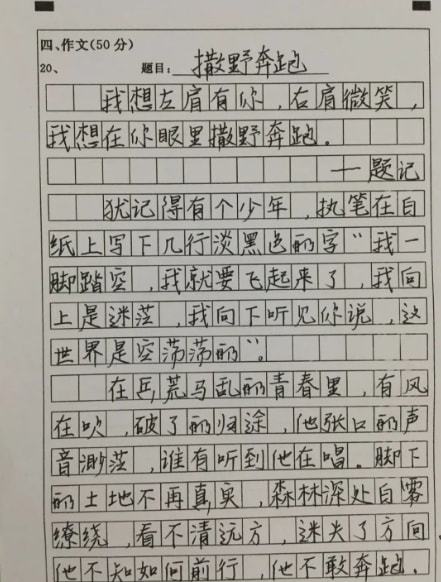 四、作文(50分)
20、 题目：撒野奔跑
我想左肩有你，右肩微笑，
我想在你眼里撒野奔跑。
——题记
犹记得有个少年，执笔在白
纸上写下几行淡黑色的字“我一
脚踏空，我就要飞起来了，我向
上是迷茫，我向下听见你说，这
世界是空荡荡的”。
在兵荒马乱的青春里，有风
在吹，破了的归途，他张口的声
音渺茫，谁有听到他在唱。脚下
的土地不再真实，森林深处白雾
缭绕，看不清远方，迷失了方向
他不知如何前行，他不敢奔跑。